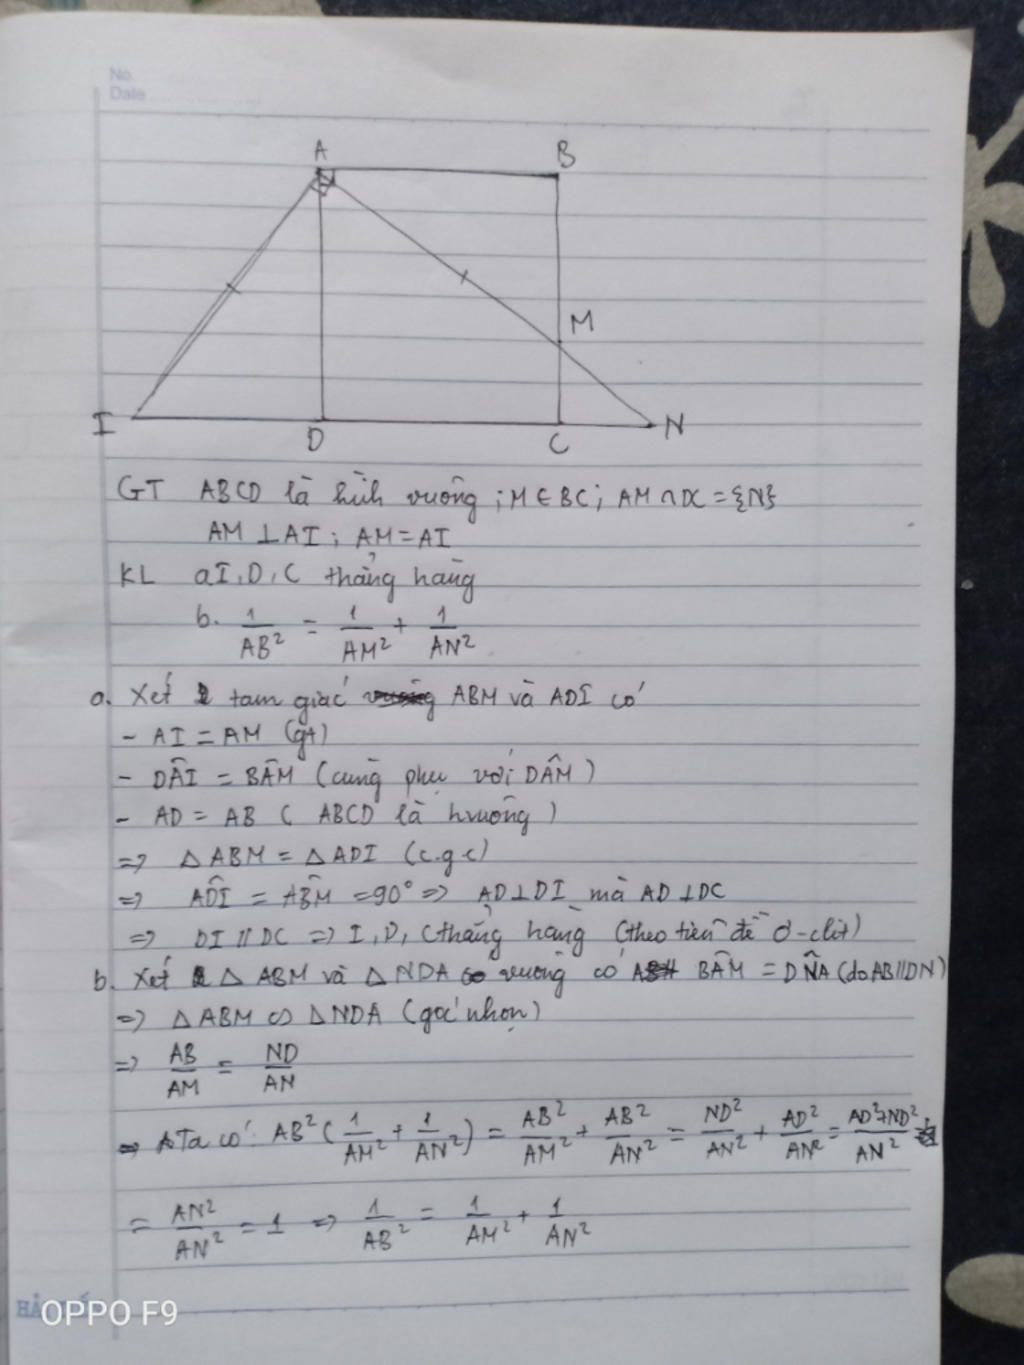 No.
Date
A
B
M
I
D
C
N
GT ABCD là hình vuông ; M ∈ BC ; AM ∩ DC = {N}
AM ⊥ AI ; AM = AI
KL a I, D, C thẳng hàng
b. 1/AB² = 1/AM² + 1/AN²
a. Xét 2 tam giác ABM và ADI có
- AI = AM (gt)
- DÂI = BÂM (cùng phụ với DÂM)
- AD = AB ( ABCD là hvuông )
=> △ ABM = △ ADI (c.g.c)
=> AD̂I = AB̂M = 90° => AD ⊥ DI mà AD ⊥ DC
=> DI // DC => I, D, C thẳng hàng (theo tiên đề Ơ-clit)
b. Xét 2 △ ABM và △ NDA vuông có BÂM = DN̂A (do AB // DN)
=> △ ABM ∽ △ NDA (góc nhọn)
=> AB/AM = ND/AN
=> Ta có: AB² (1/AM² + 1/AN²) = AB²/AM² + AB²/AN² = ND²/AN² + AD²/AN² = AD²+ND²/AN²
= AN²/AN² = 1 => 1/AB² = 1/AM² + 1/AN²
OPPO F9